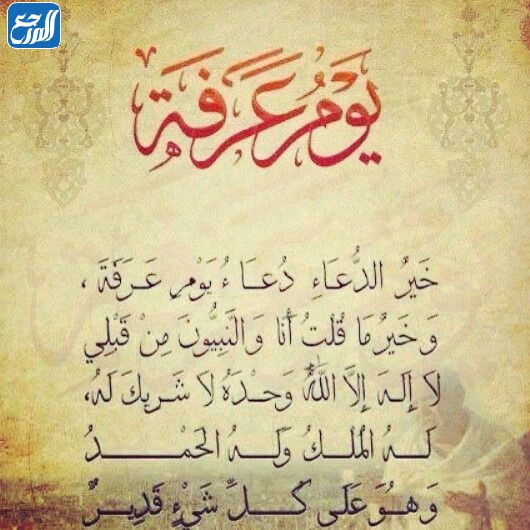 المرجع
يَوْمُ عَرَفَة
خَيرُ الدُّعَاءِ دُعَاءُ يَوْمِ عَرَفَةَ ،
وَخَيرُ مَا قُلتُ أَنَا وَالنَّبِيُّونَ مِنْ قَبْلِي
لا إِلهَ إِلاَّ اللهُ وَحْدَهُ لاَ شَرِيكَ لَهُ،
لَهُ المُلكُ وَلَهُ الحَمْدُ
وَهُوَ عَلَى كُلِّ شَيْءٍ قَدِيرٌ